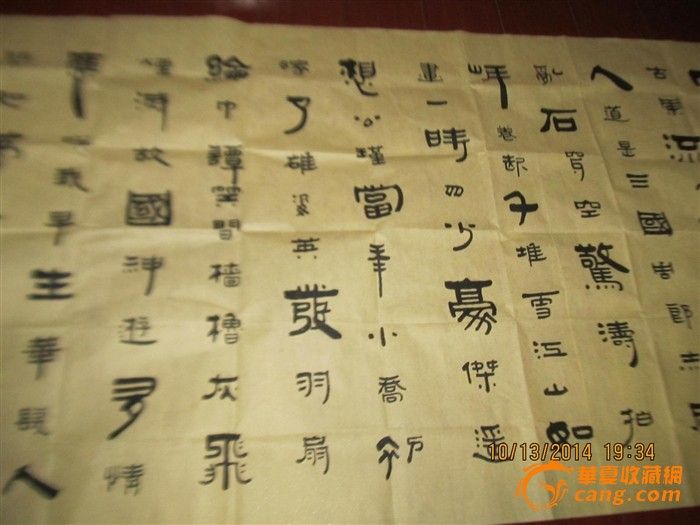 人道是三國周郎赤
亂石穿空驚濤拍
岸卷起千堆雪江山如
畫一時多少豪傑遥
想公瑾當年小喬初
嫁了雄姿英發羽扇
綸巾譚笑間檣櫓灰飛
煙滅故國神遊多情
應笑我早生華髮人
10/13/2014 19:34
華夏收藏網
cang.com